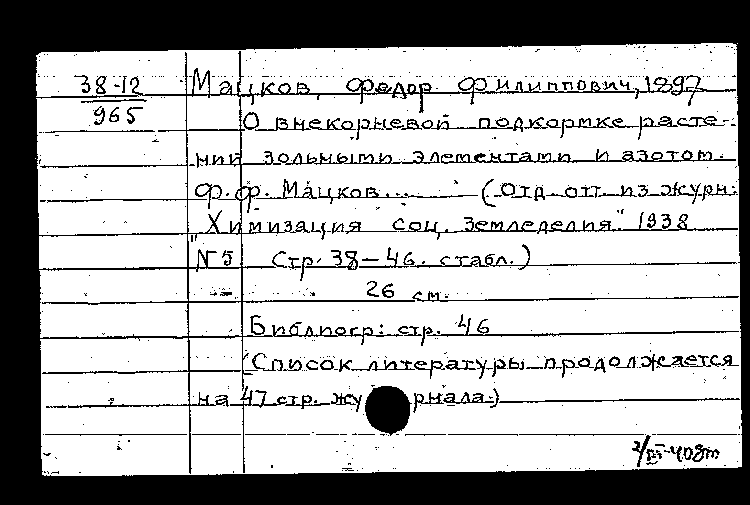 38-12
965
Мацков, Федор Филиппович, 1897
О внекорневой подкормке расте-
ний зольными элементами и азотом.
Ф. Ф. Мацков... (Отд. отт. из журн:
"Химизация соц. земледелия" 1938
N 5 Стр. 38-46. с табл.)
26 см.
Библиогр: стр. 46
(Список литературы продолжается
на 47 стр. журнала)